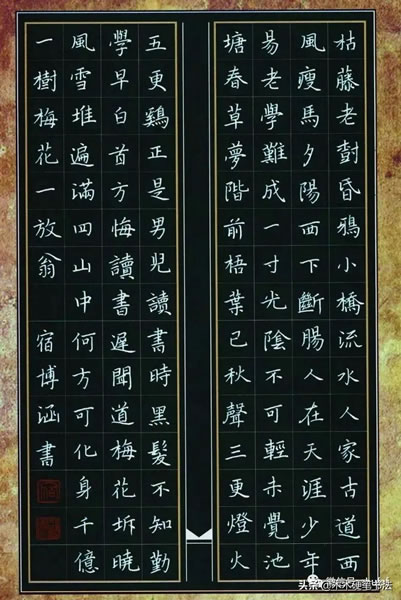 枯藤老樹昏鴉小橋流水人家古道西
風瘦馬夕陽西下斷腸人在天涯少年
易老學難成一寸光陰不可輕未覺池
塘春草夢階前梧葉已秋聲三更燈火
五更鷄正是男兒讀書時黑髮不知勤
學早白首方悔讀書遲聞道梅花坼曉
風雪堆遍滿四山中何方可化身千億
一樹梅花一放翁 宿博涵書